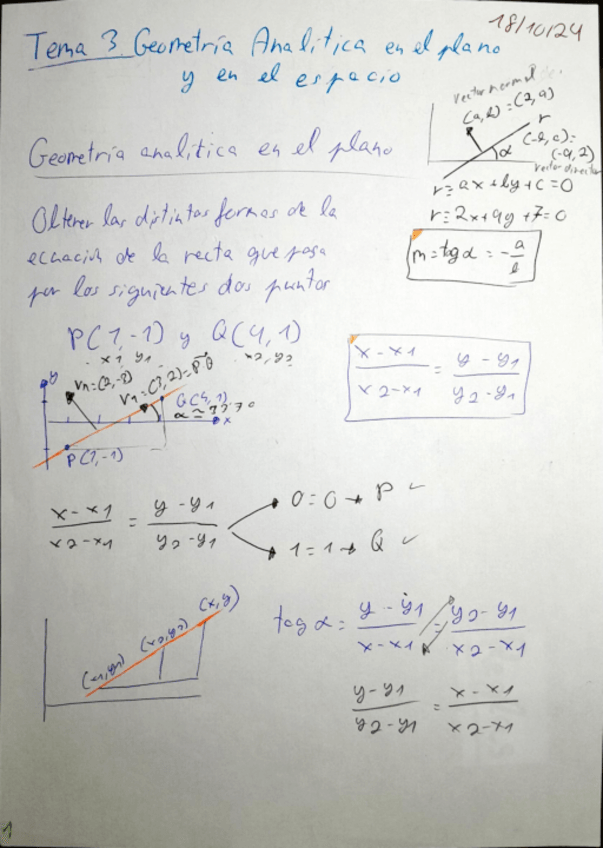 18/10/24
Tema 3 Geometría Analítica en el plano
y en el espacio
vector normal
r
α
vector director
r≡ax+by+c=0
m=tgα=-a/b
Geometría analítica en el plano
Obtener las distintas formas de la
ecuación de la recta que pasa
por los siguientes dos puntos
P(1,-1) y Q(4,1)
x1 y1 x2 y2
(x-x1)/(x2-x1) = (y-y1)/(y2-y1)
y
Q(4,1)
x
P(1,-1)
(x-x1)/(x2-x1) = (y-y1)/(y2-y1)
0=0 → P ✓
1=1 → Q ✓
(x,y)
(x2,y2)
(x1,y1)
tog α = (y-y1)/(x-x1) = (y2-y1)/(x2-x1)
(y-y1)/(y2-y1) = (x-x1)/(x2-x1)
1